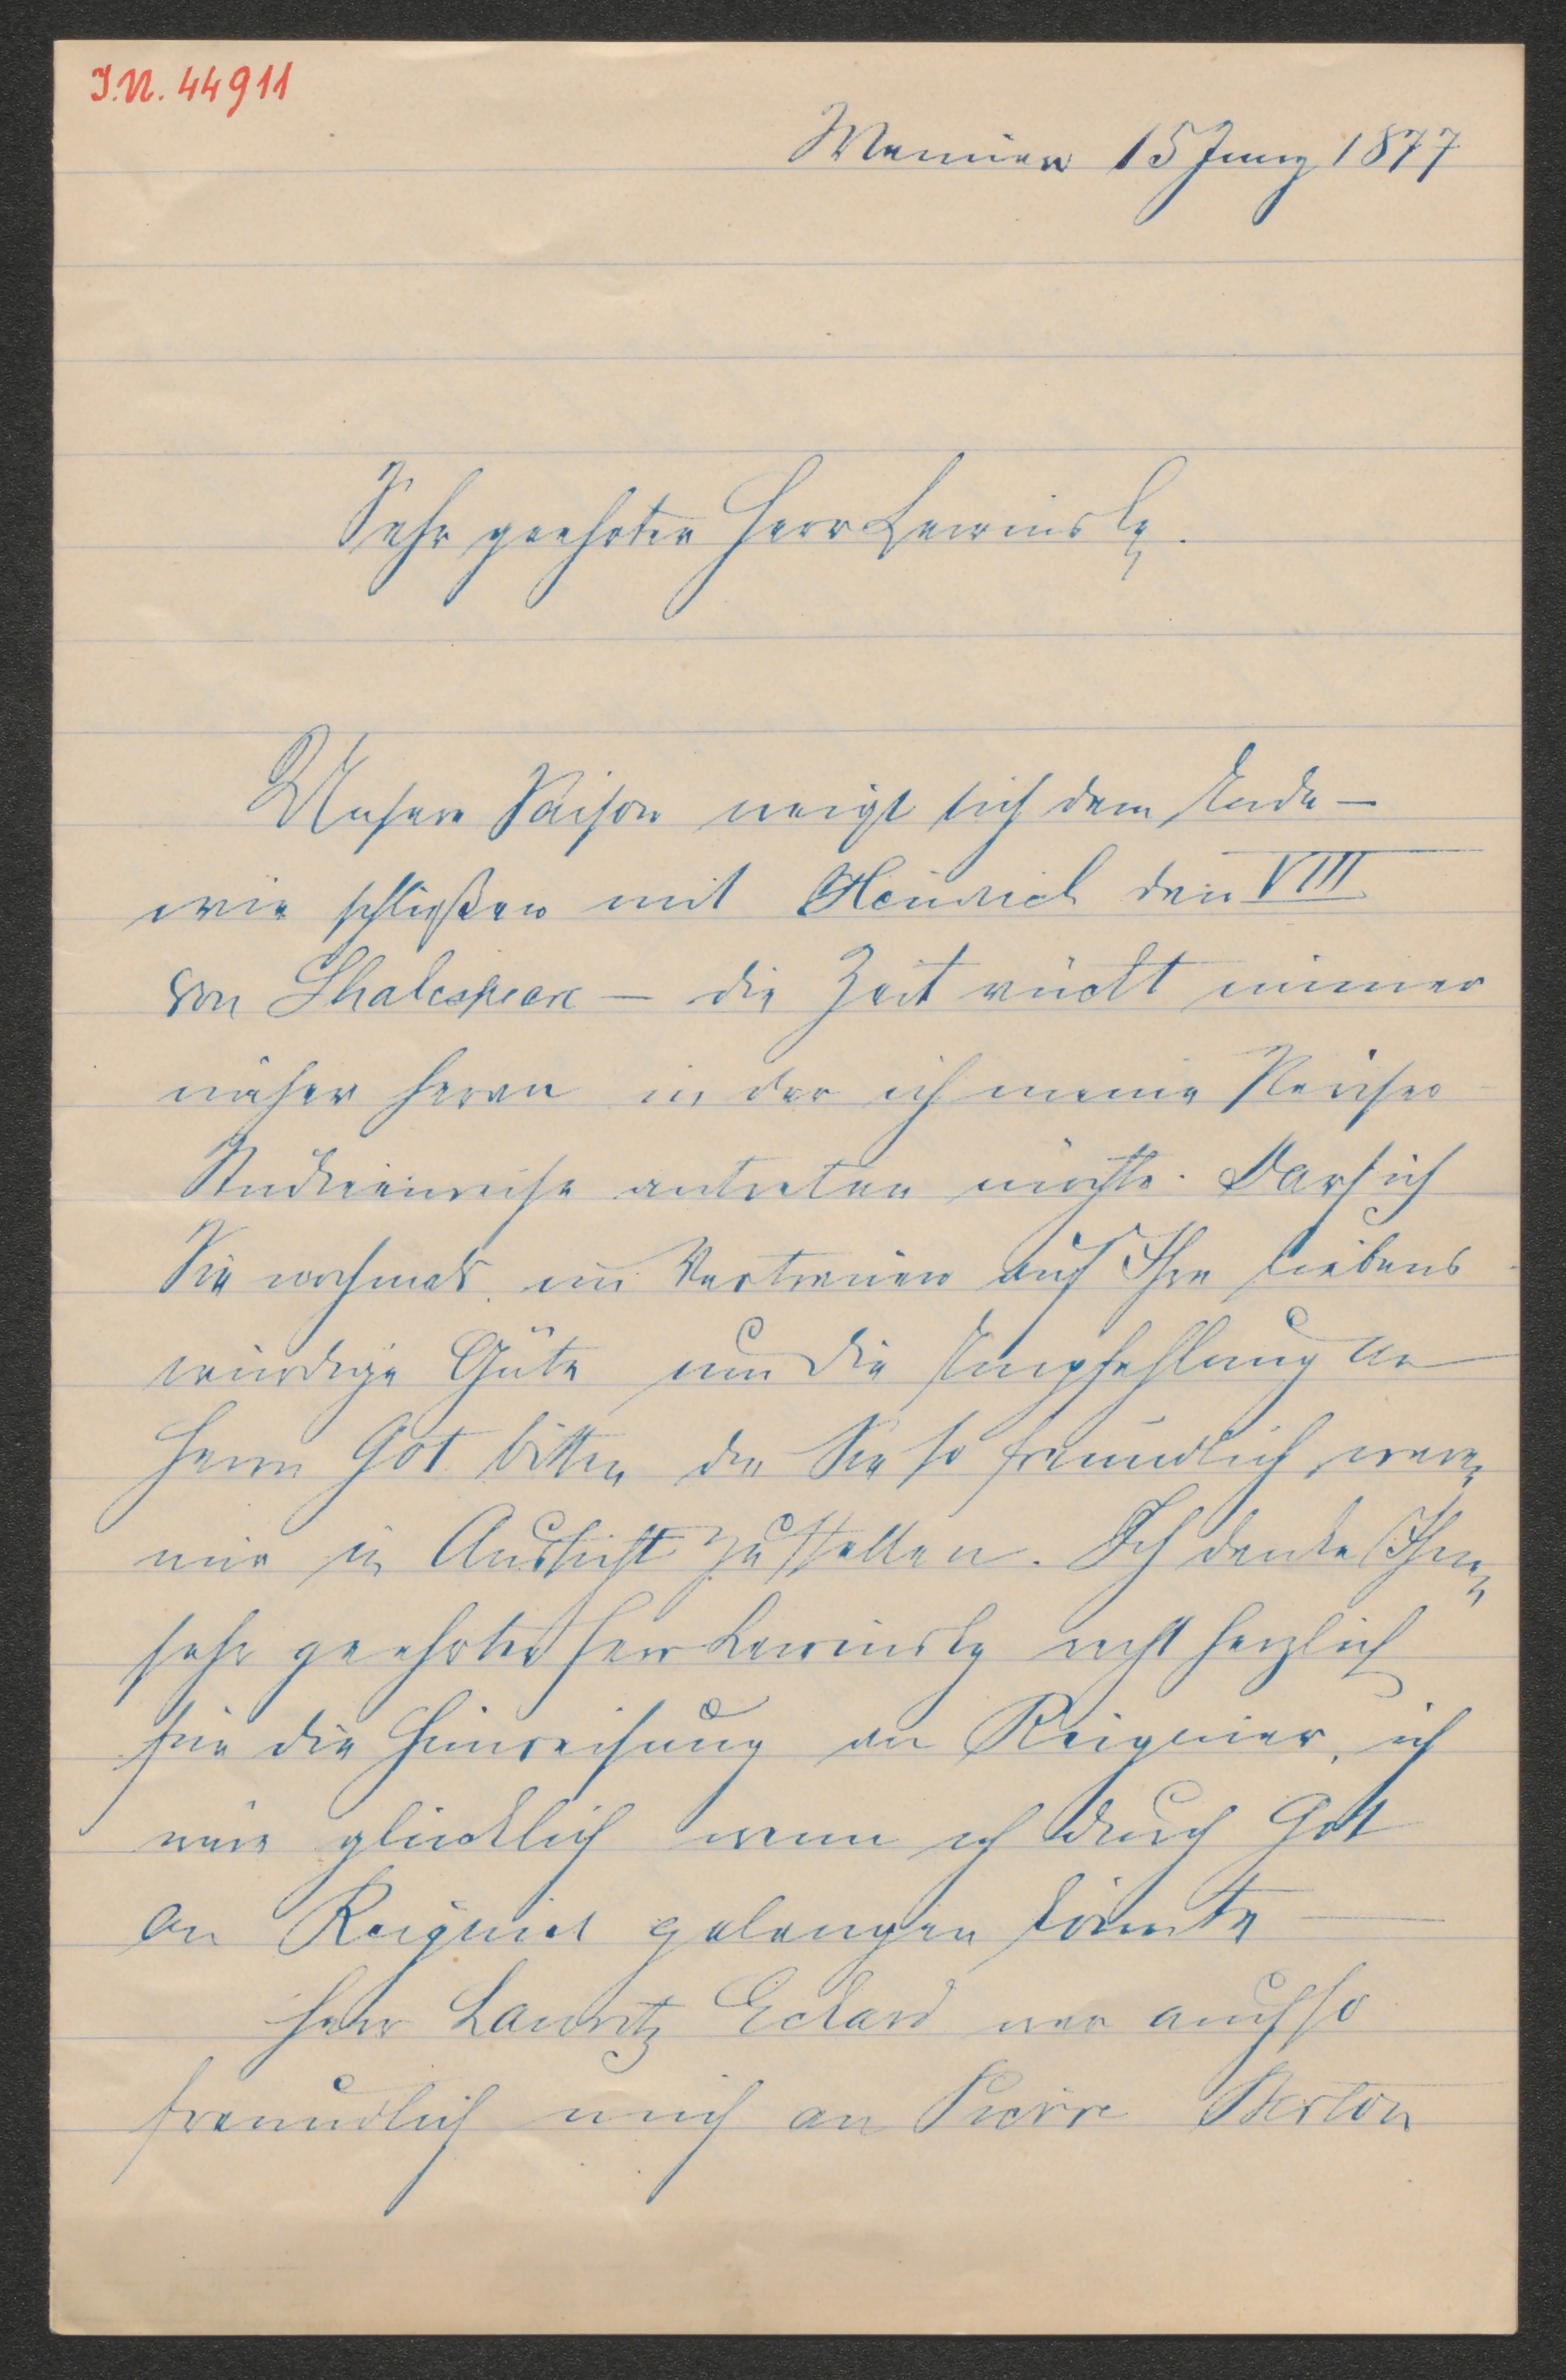 I.N. 44911
Weimar 15 Juny 1877
Sehr geehrter Herr Lewinsky.
Unsere Saison neigt sich dem Ende —
wir schließen mit Heinrich den VIII
von Shakespeare — die Zeit rückt immer
näher heran in der ich meine Pariser
Studienreise antreten möchte. Darf ich
Sie nochmals im Vertrauen auf Ihre liebens
würdige Güte um die Empfehlung an
Herrn Got bitten die Sie so freundlich waren
mir in Aussicht zu stellen. Ich danke Ihnen
sehr geehrter Herr Lewinsky recht herzlich
für die Hinweisung an Reignier, ich
wäre glücklich wenn ich durch Got
an Reignier gelangen könnte —
Herr Lauritz Eckard war auch so
freundlich mich an Pierre Berton